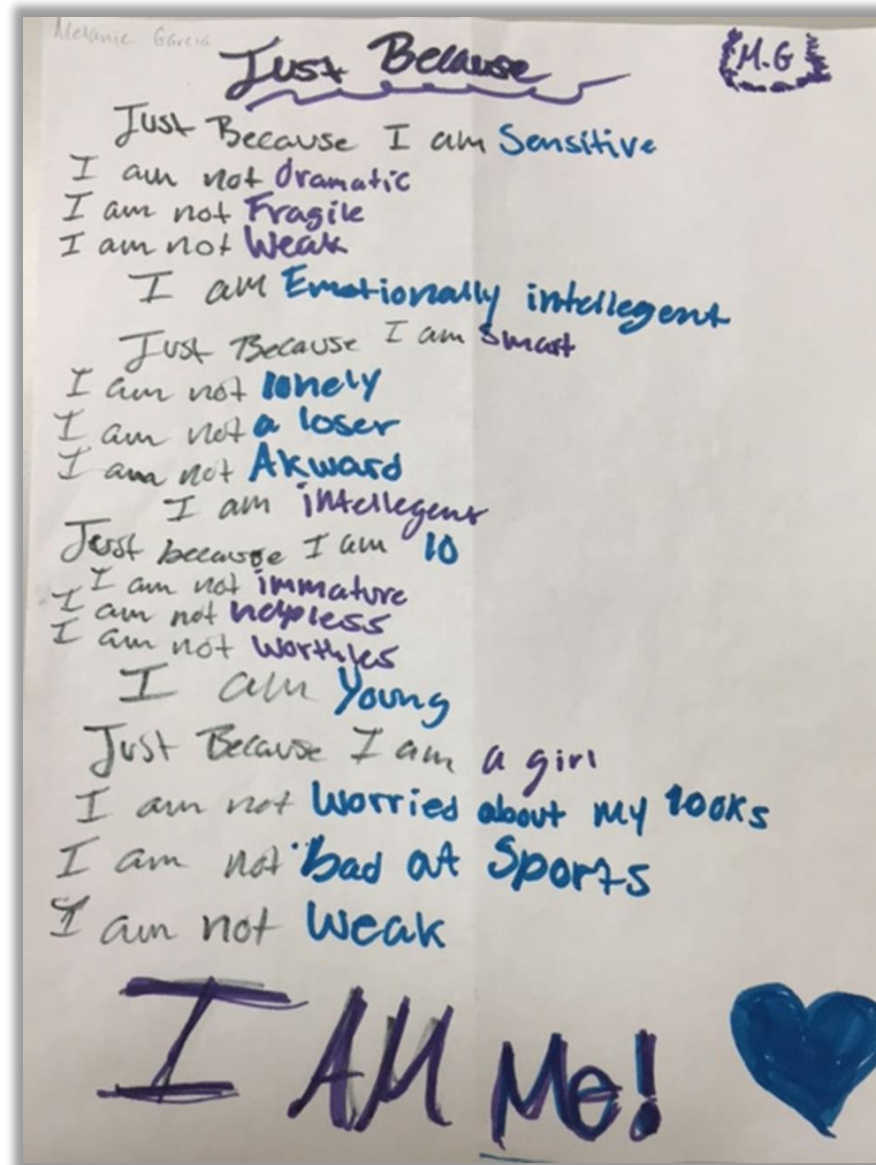 Melanie Garcia
Just Because
M.G
Just Because I am Sensitive
I am not dramatic
I am not Fragile
I am not Weak
I am Emotionally intellegent
Just Because I am Smart
I am not lonely
I am not a loser
I am not AKward
I am intellegent
Just because I am 10
I am not immature
I am not helpless
I am not Worthles
I am Young
Just Because I am a girl
I am not Worried about my looks
I am not Bad at Sports
I am not Weak
I AM Me!